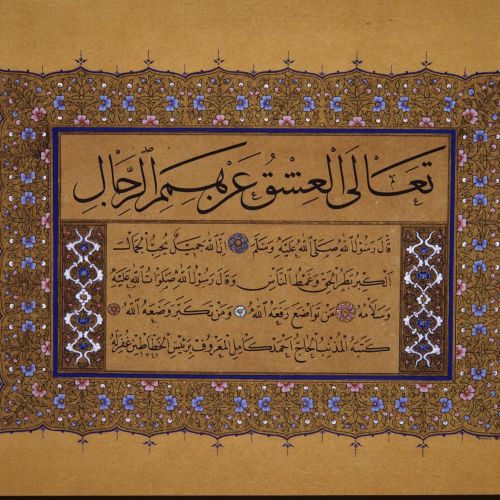 تعالى العشق عن همم الرجال
قال رسول الله صلى الله عليه وسلم إن الله جميل يحب الجمال
الكبر بطر الحق وغمط الناس وقال رسول الله صلوات الله عليه
وسلامه من تواضع رفعه الله ومن تكبر وضعه الله
كتبه المذنب الحاج احمد كامل المعروف برئيس الخطاطين غفر له